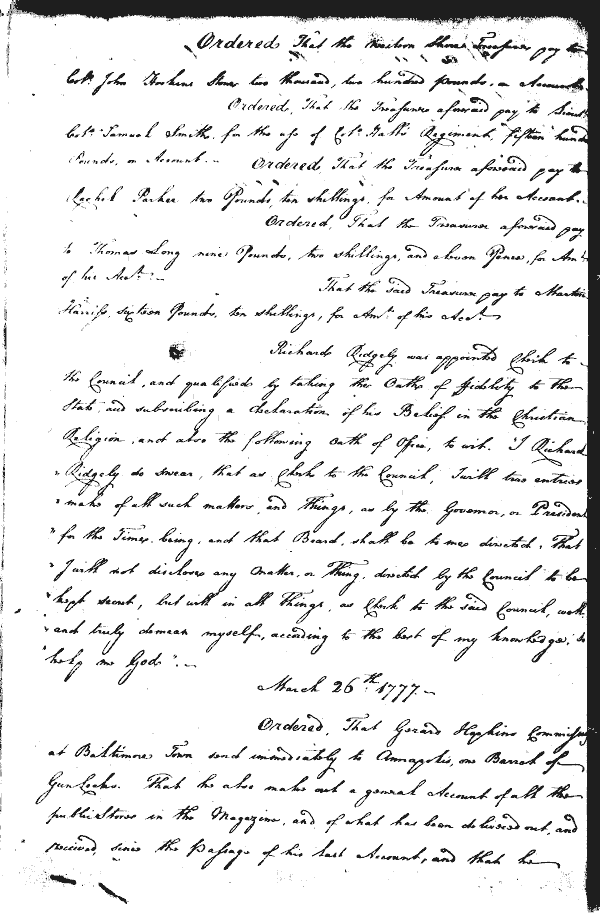 Ordered That the Western Shore Treasurer pay to
Colo. John Hoskins Stone two thousand, two hundred pounds, on Account.
Ordered, That the Treasurer aforesaid pay to Lieut
Colo. Samuel Smith, for the use of Colo. Gist's Regiment, fifteen hundd
Pounds, on Account. —
Ordered, That the Treasurer aforesaid pay to
Rachel Parker two Pounds, ten shillings, for Amount of her Account. -
Ordered, That the Treasurer aforesaid pay
to Thomas Long nine Pounds, two shillings, and eleven Pence, for Amt.
of his Acct. —
That the said Treasurer pay to
Harris, sixteen Pounds, ten shillings, for Amt. of his Acct.
Richard Ridgely was appointed Clerk to
the Council, and qualified by taking the Oaths of fidelity to the
State and subscribing a declaration of his Belief in the Christian
Religion, and also the following oath of Office, to wit. "I Richard
"Ridgely do swear, that as Clerk to the Council, I will true entries
"make of all such matters, and things, as by the Governor, or President
"for the Time being, and that Board, shall be to me directed. That
"I will not disclose any Matter, or Thing, directed by the Council to be
"kept secret, but will in all Things, as Clerk to the said Council, well
"and truly demean myself, according to the best of my knowledge. So
"help me God". —
March 26th. 1777. —
Ordered, That Gerard Hopkins Commissary
at Baltimore Town send immediately to Annapolis, one Barrel of
Gun Locks. That he also make out a general Account of all the
public Stores in the Magazine, and of what has been delivered out, and
received, since the Passage of his last Account, and that he